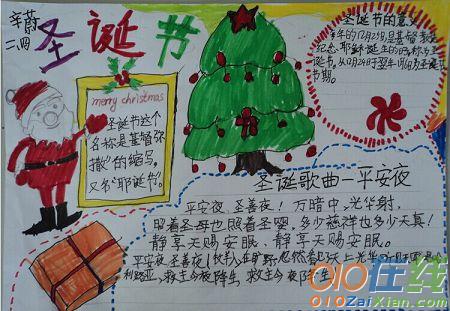 辛蔚
二.四
圣诞节
merry christmas
圣诞节这个
名称是基督弥
撒"的缩写,
又名"耶诞节"。
圣诞节的意义
年的12月25日,是基督教
纪念耶稣诞生的日称为圣
诞节。从12月24日于翌年1月6日为圣诞节
节期。
圣诞歌曲—平安夜
平安夜,圣善夜!万暗中,光华射,
照着圣母也照着圣婴,多少慈祥也多少天真!
静享天赐安眠,静享天赐安眠。
平安夜,圣善夜!牧羊人,在旷野,忽然看见天上光华
利路亚,救主今夜降生,救主今夜降生!
010在线
010ZaiXian.com